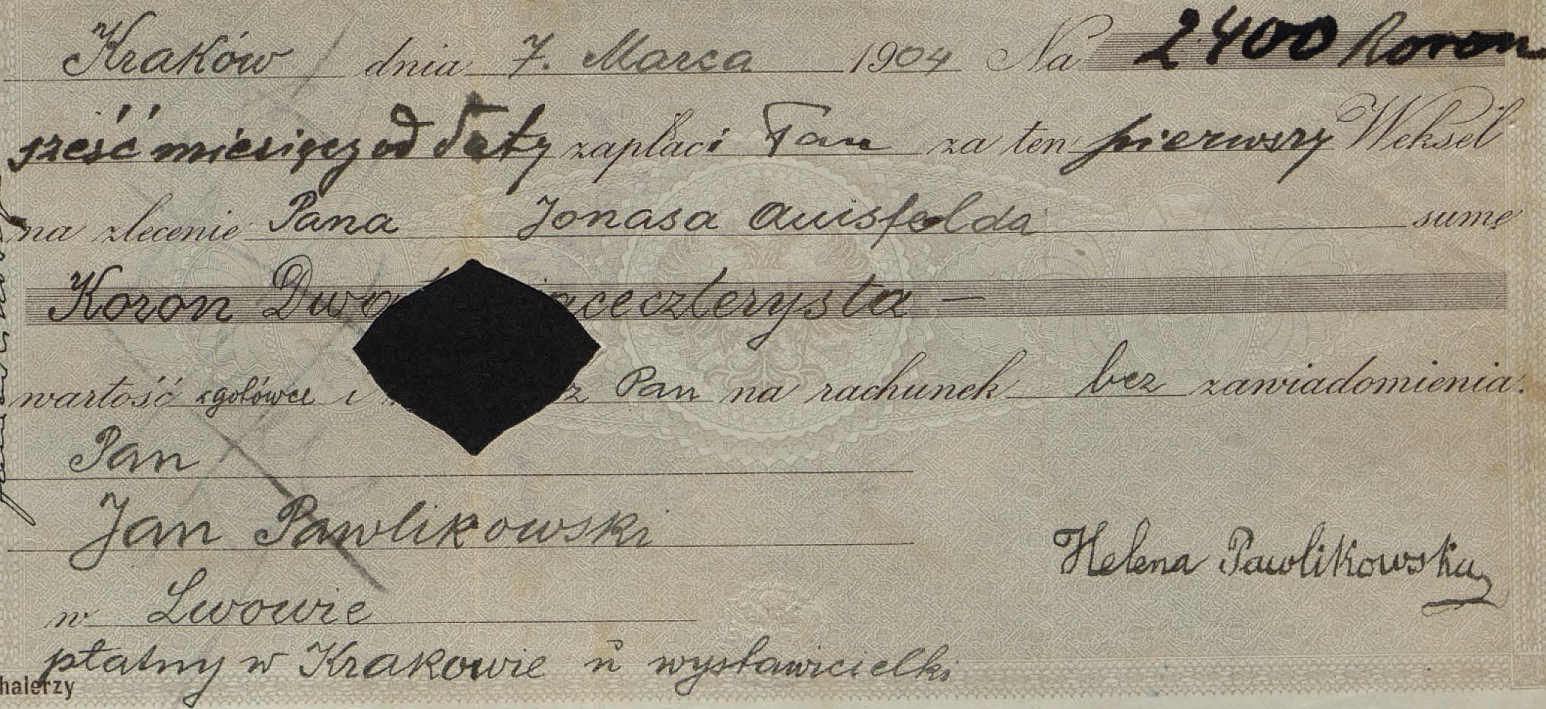 Kraków dnia 7. Marca 1904 Na 2400 Koron
sześć miesięcy od daty zapłaci Pan za ten pierwszy Weksel
na zlecenie Pana Jonasa Auisfelda sumę
Koron czterysta —
wartość zgotówce i Pan na rachunek bez zawiadomienia.
Pan
Jan Pawlikowski
Helena Pawlikowska
w Lwowie
płatny w Krakowie u wystawicielki
halerzy